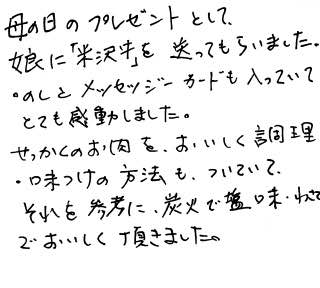 母の日のプレゼントとして、
娘に「米沢牛」を送ってもらいました。
・のしとメッセージカードも入っていて
とても感動しました。
せっかくのお肉を、おいしく調理
・味つけの方法も、ついていて、
それを参考に、炭火で塩味・わさ
でおいしく頂きました。